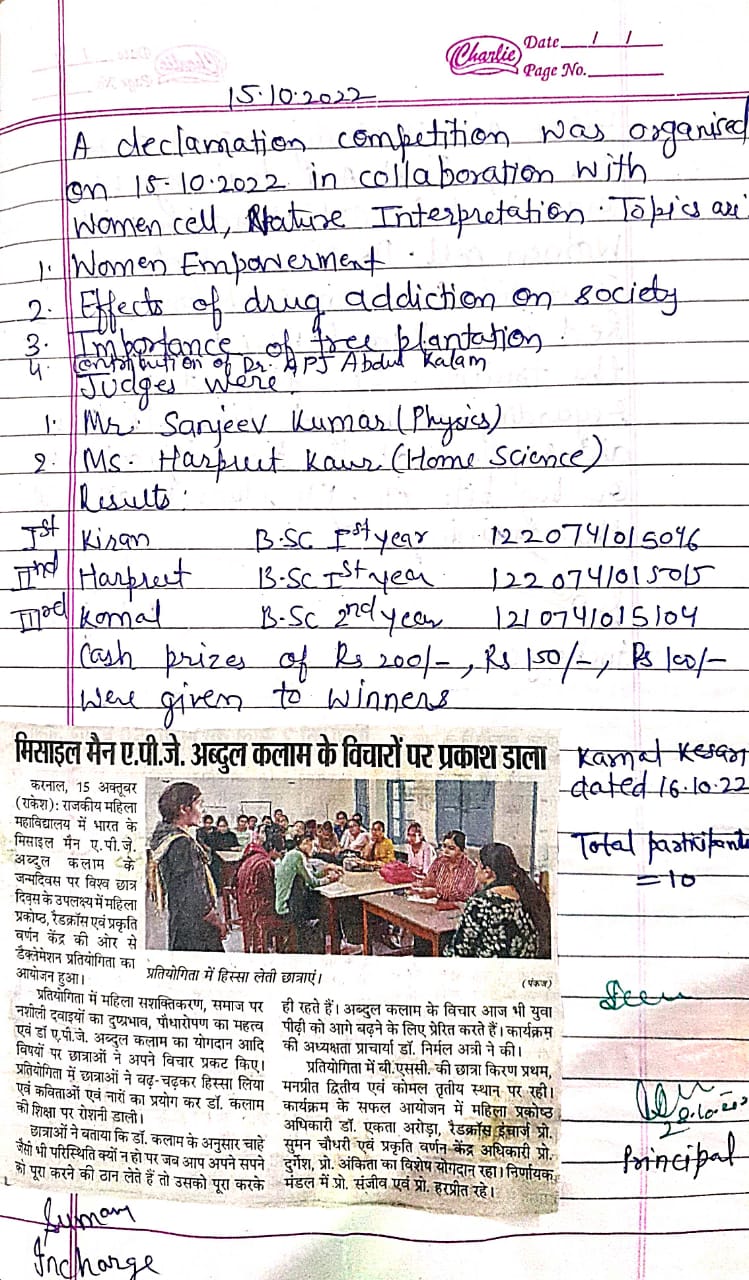 Charlie
Date / /
Page No.
15.10.2022
A declamation competition was organised
on 15-10-2022 in collaboration with
Women cell, Nature Interpretation. Topics are
1. Women Empowerment.
2. Effects of drug addiction on society
3. Importance of tree plantation.
4. Contribution of Dr. APJ Abdul Kalam
Judges were
1. Mr. Sanjeev Kumar (Physics)
2. Ms. Harpreet Kaur (Home Science)
Results:
Ist Kiran B.SC Ist year 1220741015046
IInd Harpreet B.SC Ist year 1220741015015
IIIrd Komal B.SC 2nd year 1210741015104
Cash prizes of Rs 200/-, Rs 150/-, Rs 100/-
were given to winners
मिसाइल मैन ए.पी.जे. अब्दुल कलाम के विचारों पर प्रकाश डाला
करनाल, 15 अक्तूबर
(राकेश): राजकीय महिला
महाविद्यालय में भारत के
मिसाइल मैन ए.पी.जे.
अब्दुल कलाम के
जन्मदिवस पर विश्व छात्र
दिवस के उपलक्ष्य में महिला
प्रकोष्ठ, रैडक्रॉस एवं प्रकृति
वर्णन केंद्र की ओर से
डैक्लेमेशन प्रतियोगिता का
आयोजन हुआ।
प्रतियोगिता में हिस्सा लेती छात्राएं।
(पंकज)
प्रतियोगिता में महिला सशक्तिकरण, समाज पर
नशीली दवाइयों का दुष्प्रभाव, पौधारोपण का महत्व
एवं डॉ ए.पी.जे. अब्दुल कलाम का योगदान आदि
विषयों पर छात्राओं ने अपने विचार प्रकट किए।
प्रतियोगिता में छात्राओं ने बढ़-चढ़कर हिस्सा लिया
एवं कविताओं एवं नारों का प्रयोग कर डॉ. कलाम
की शिक्षा पर रोशनी डाली।
छात्राओं ने बताया कि डॉ. कलाम के अनुसार चाहे
जैसी भी परिस्थिति क्यों न हो पर जब आप अपने सपने
को पूरा करने की ठान लेते हैं तो उसको पूरा करके
ही रहते हैं। अब्दुल कलाम के विचार आज भी युवा
पीढ़ी को आगे बढ़ने के लिए प्रेरित करते हैं। कार्यक्रम
की अध्यक्षता प्राचार्या डॉ. निर्मल अत्री ने की।
प्रतियोगिता में बी.एससी. की छात्रा किरण प्रथम,
मनप्रीत द्वितीय एवं कोमल तृतीय स्थान पर रही।
कार्यक्रम के सफल आयोजन में महिला प्रकोष्ठ
अधिकारी डॉ. एकता अरोड़ा, रैडक्रॉस इंचार्ज प्रो.
सुमन चौधरी एवं प्रकृति वर्णन केंद्र अधिकारी प्रो.
दुर्गेश, प्रो. अंकिता का विशेष योगदान रहा। निर्णायक
मंडल में प्रो. संजीव एवं प्रो. हरप्रीत रहे।
Karnal Kesari
dated 16.10.22
Total participants
=10
Seen
Principal
Suman
Incharge